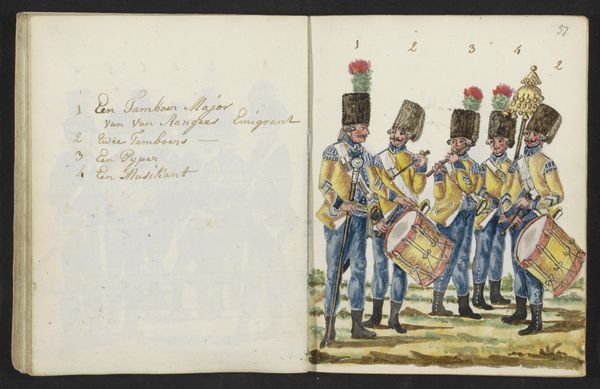 1 Een Tamboer Major
van van Aangees Emigrent
2 twee Tamboers —
3 Een Pyper
4 Een Musikant
1 2 3 4 2
37